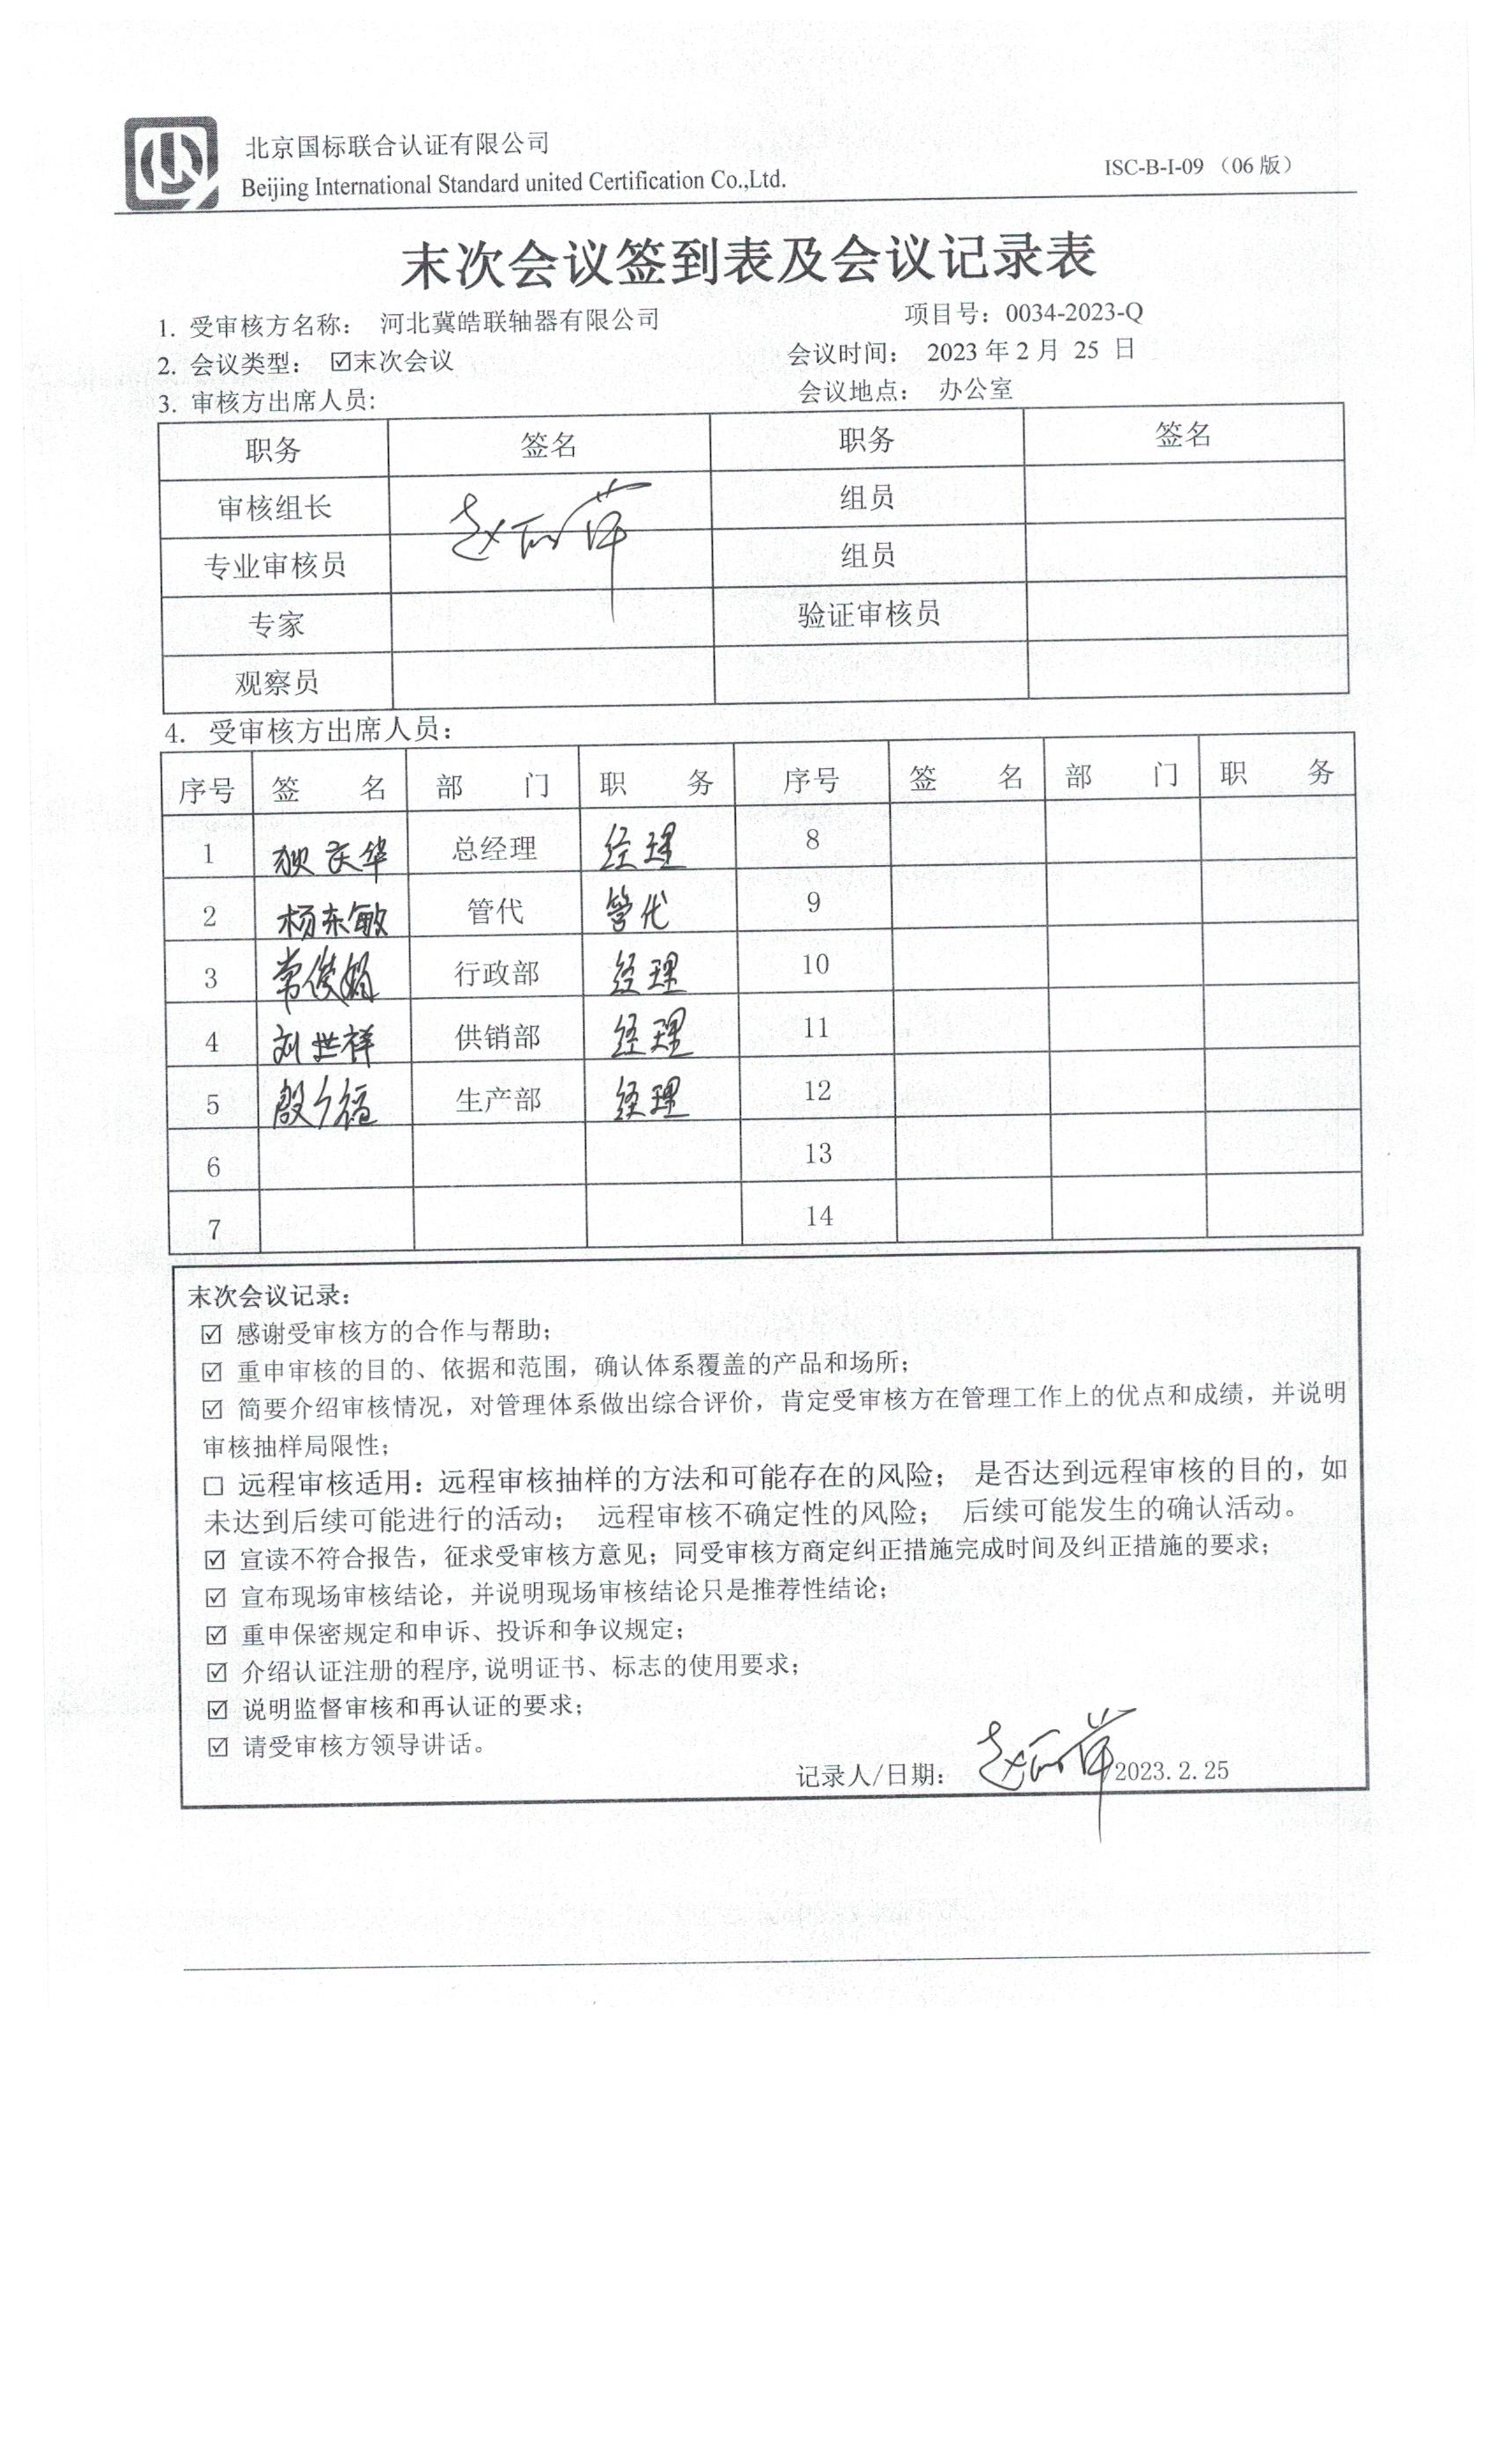 北京国标联合认证有限公司
Beijing International Standard united Certification Co.,Ltd.
ISC-B-I-09（06 版）
末次会议签到表及会议记录表
1. 受审核方名称： 河北冀皓联轴器有限公司 项目号：0034-2023-Q
2. 会议类型： ☑末次会议 会议时间： 2023 年 2 月 25 日
3. 审核方出席人员: 会议地点： 办公室
职务 签名 职务 签名
审核组长 组员
专业审核员 组员
专家 验证审核员
观察员
4. 受审核方出席人员：
序号 签 名 部 门 职 务 序号 签 名 部 门 职 务
1 总经理 经理 8
2 杨东敏 管代 管代 9
3 常俊娟 行政部 经理 10
4 刘世祥 供销部 经理 11
5 生产部 经理 12
6 13
7 14
末次会议记录：
☑ 感谢受审核方的合作与帮助；
☑ 重申审核的目的、依据和范围，确认体系覆盖的产品和场所；
☑ 简要介绍审核情况，对管理体系做出综合评价，肯定受审核方在管理工作上的优点和成绩，并说明
审核抽样局限性；
☐ 远程审核适用：远程审核抽样的方法和可能存在的风险； 是否达到远程审核的目的，如
未达到后续可能进行的活动； 远程审核不确定性的风险； 后续可能发生的确认活动。
☑ 宣读不符合报告，征求受审核方意见；同受审核方商定纠正措施完成时间及纠正措施的要求；
☑ 宣布现场审核结论，并说明现场审核结论只是推荐性结论；
☑ 重申保密规定和申诉、投诉和争议规定；
☑ 介绍认证注册的程序,说明证书、标志的使用要求；
☑ 说明监督审核和再认证的要求；
☑ 请受审核方领导讲话。
记录人/日期： 2023.2.25